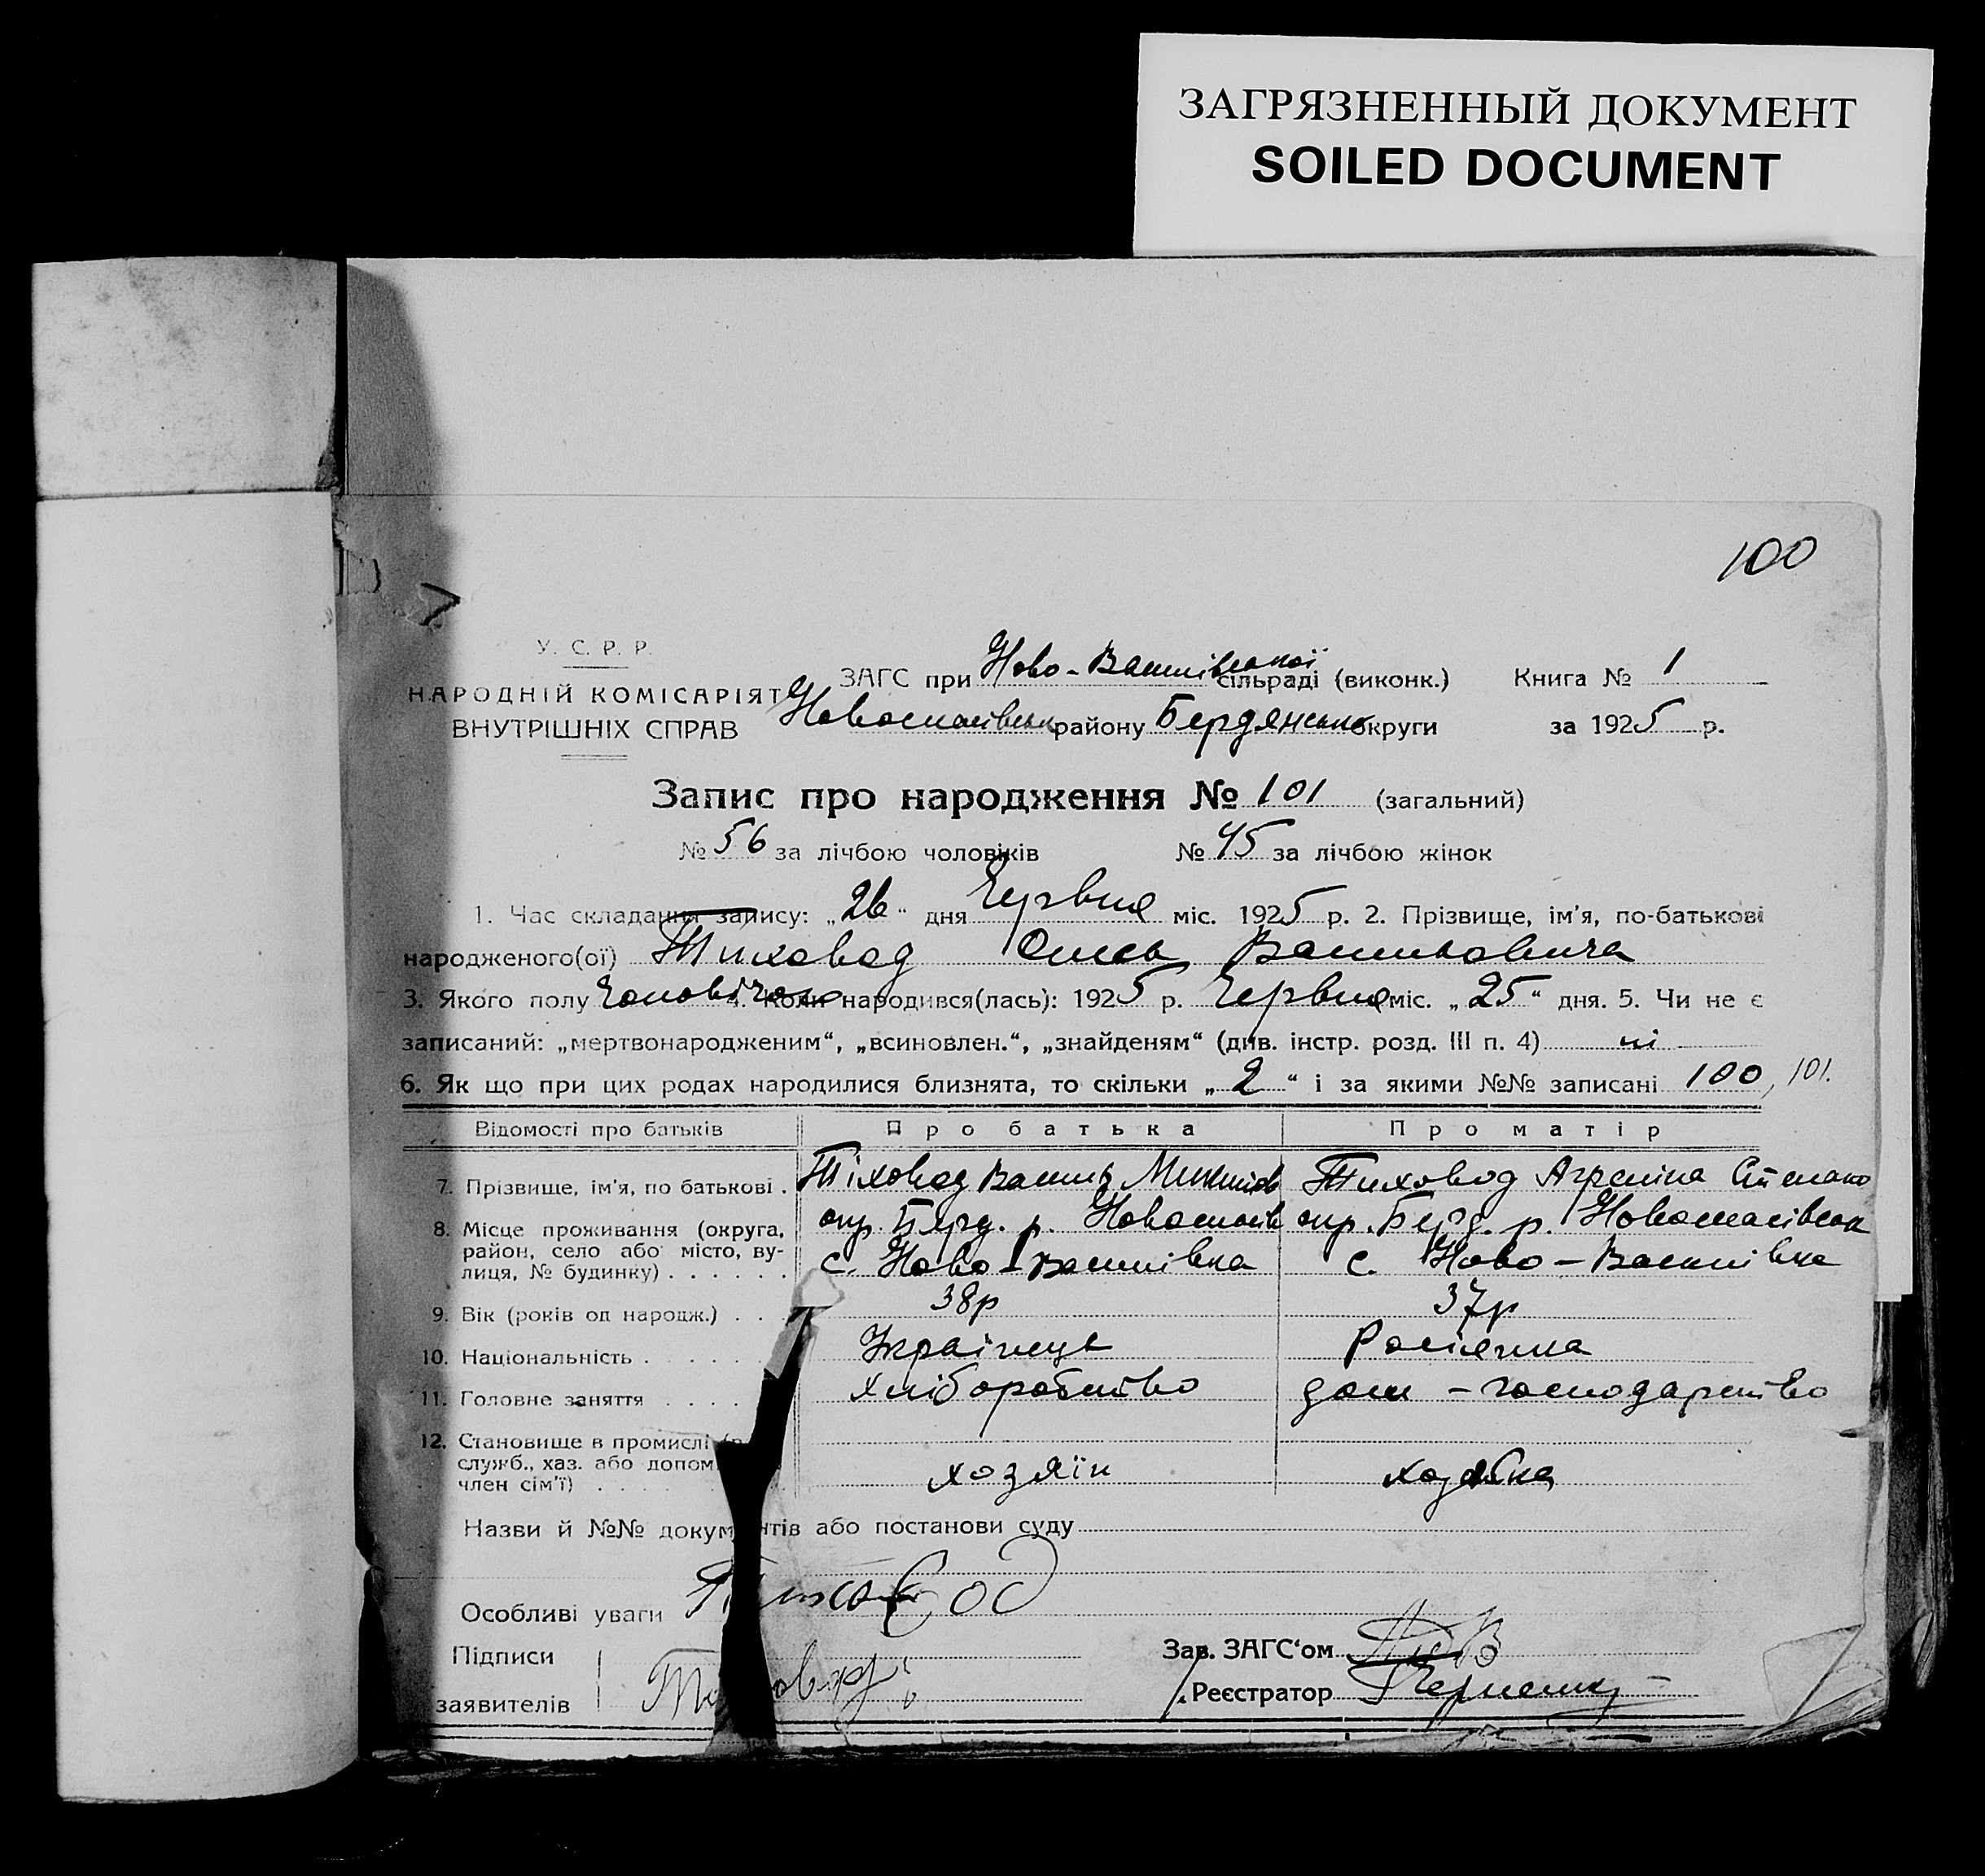 ЗАГРЯЗНЕННЫЙ ДОКУМЕНТ
SOILED DOCUMENT
100
У. С. Р. Р.
НАРОДНІЙ КОМІСАРІЯТ
ВНУТРІШНІХ СПРАВ
ЗАГС при Ново-Василівської сільраді (виконк.) Книга № 1
Новоспасівськ району Бердянсько округи за 1925 р.
Запис про народження № 101 (загальний)
№ 56 за лічбою чоловіків № 45 за лічбою жінок
1. Час складання запису: „26“ дня Червня міс. 1925 р. 2. Прізвище, ім'я, по-батькові
народженого(ої) Тиховод Олесь Васильовича
3. Якого полу Чоловічого 4. Коли народився(лась): 1925 р. Червня міс. „25“ дня. 5. Чи не є
записаний: „мертвонародженим“, „всиновлен.“, „знайденям“ (див. інстр. розд. III п. 4) ні
6. Як що при цих родах народилися близнята, то скільки „2“ і за якими №№ записані 100, 101.
Відомості про батьків Про батька Про матір
7. Прізвище, ім'я, по батькові . Тіховод Василь Микитов Тиховод Агрепіна Степано
8. Місце проживання (округа, район, село або місто, вулиця, № будинку) . . . . . . окр. Берд. р. Новоспасів окр. Берд. р. Новоспасівськ
с. Ново-Василівка с. Ново-Василівка
9. Вік (років од народж.) . . . 38р 37р
10. Національність . . . . . Українець Росіянка
11. Головне заняття . . . . хліборобство дом - господарство
12. Становище в промислі
служб., хаз. або допом
член сім'ї) . . . . . хозяїн хозяйка
Назви й №№ документів або постанови суду
Особливі уваги Тиховод
Підписи
заявителів
Зав. ЗАГС'ом
Реєстратор